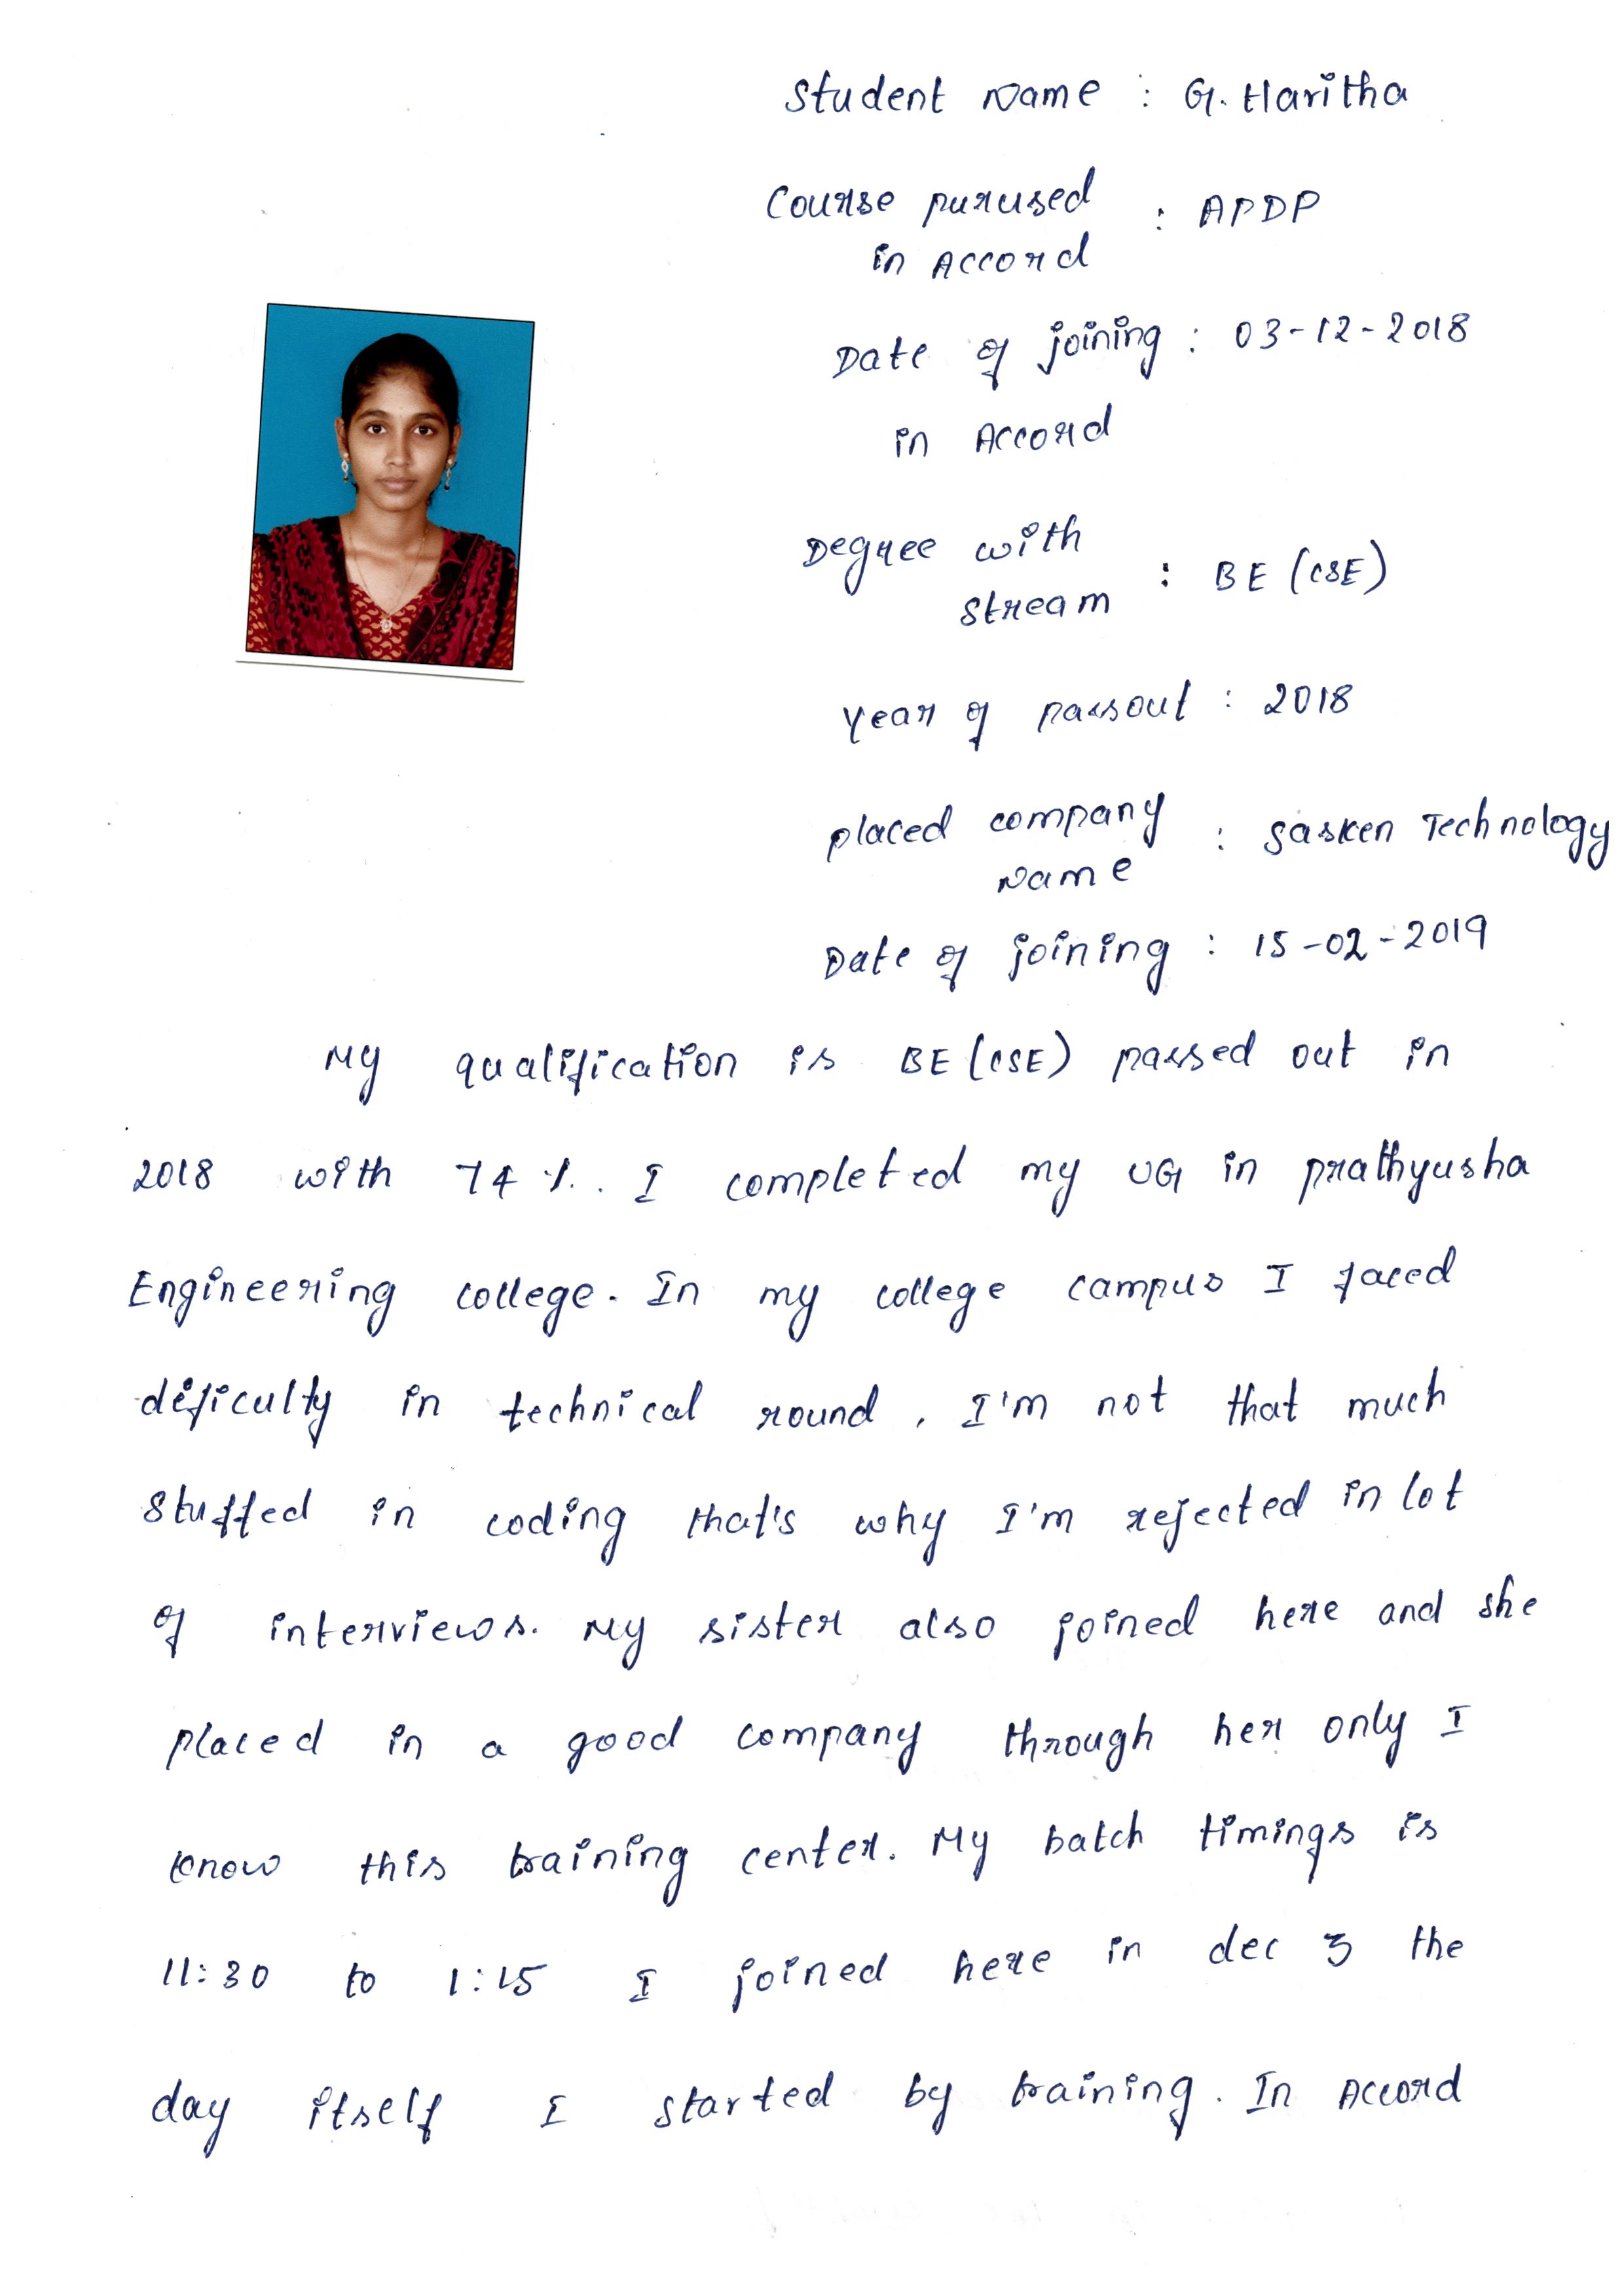 Student Name : G. Haritha
Course purused : APDP
in Accord
Date of joining : 03-12-2018
in Accord
Degree with : BE (CSE)
stream
Year of passout : 2018
placed company : Sasken Technology
Name
Date of joining : 15-02-2019
My qualification is BE (CSE) passed out in
2018 with 74%. I completed my UG in prathyusha
Engineering college. In my college campus I faced
deficulty in technical round, I'm not that much
stuffed in coding that's why I'm rejected in lot
of interviews. My sister also joined here and she
placed in a good company through her only I
know this training center. My batch timings is
11:30 to 1:15 I joined here in dec 3 the
day itself I started by training. In Accord